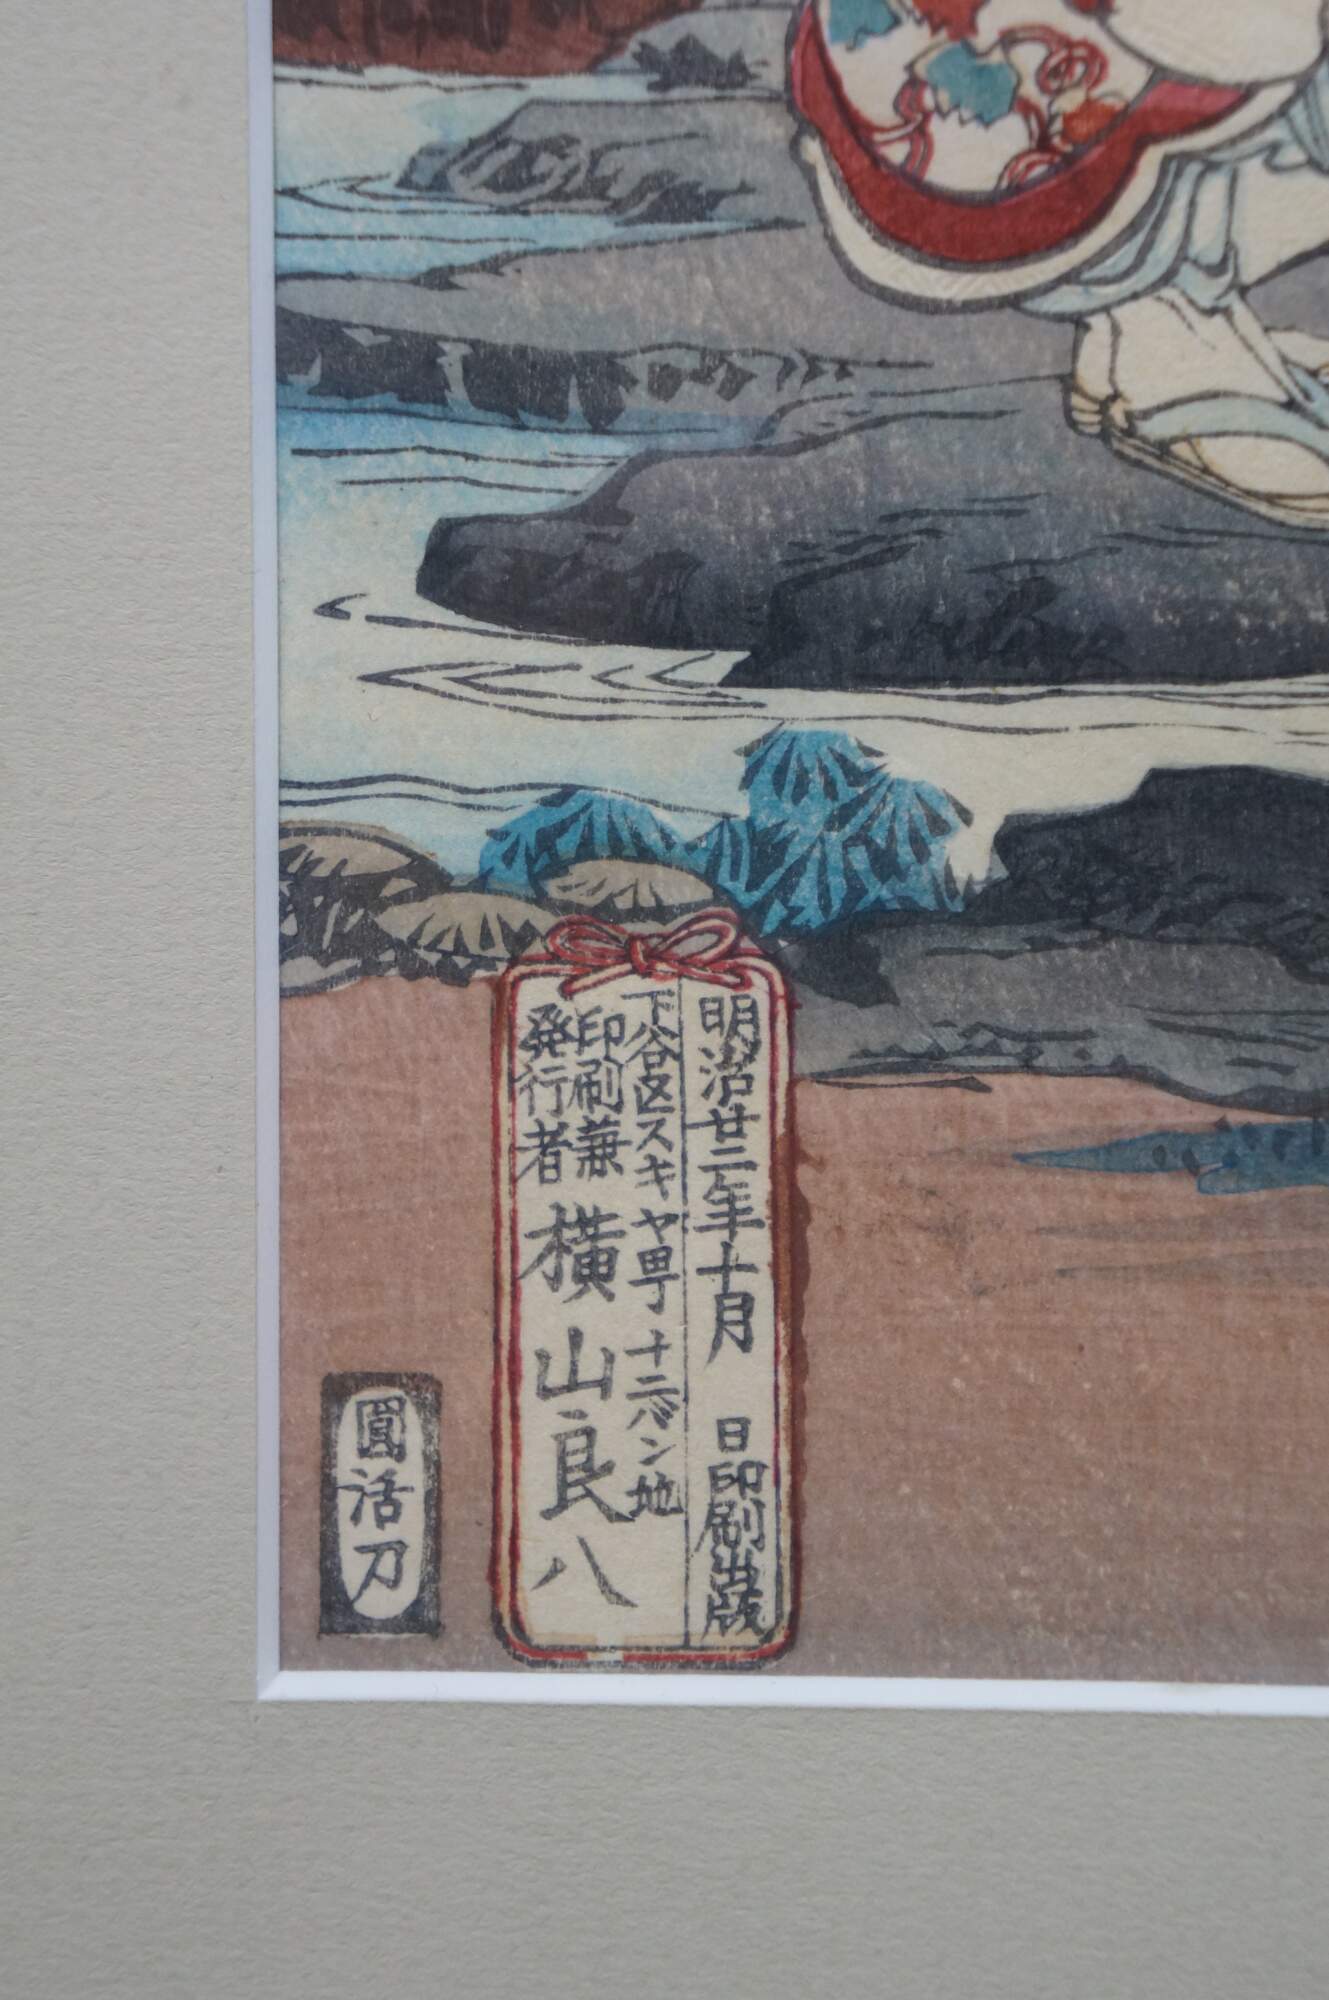 明治廿二年十月　日印刷出版
下谷区スキヤ町十二バン地
印刷兼
発行者
横山良八
圓活刀